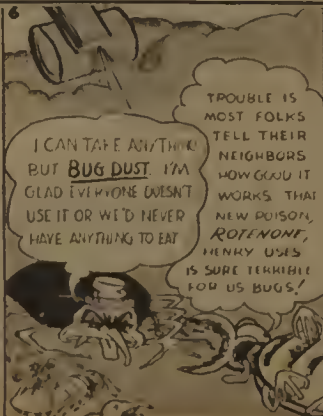 6
I CAN TAKE ANYTHING
BUT BUG DUST. I'M
GLAD EVERYONE DOESN'T
USE IT OR WE'D NEVER
HAVE ANYTHING TO EAT
TROUBLE IS
MOST FOLKS
TELL THEIR
NEIGHBORS
HOW GOOD IT
WORKS. THAT
NEW POISON,
ROTENONE,
HENRY USES
IS SURE TERRIBLE
FOR US BUGS!